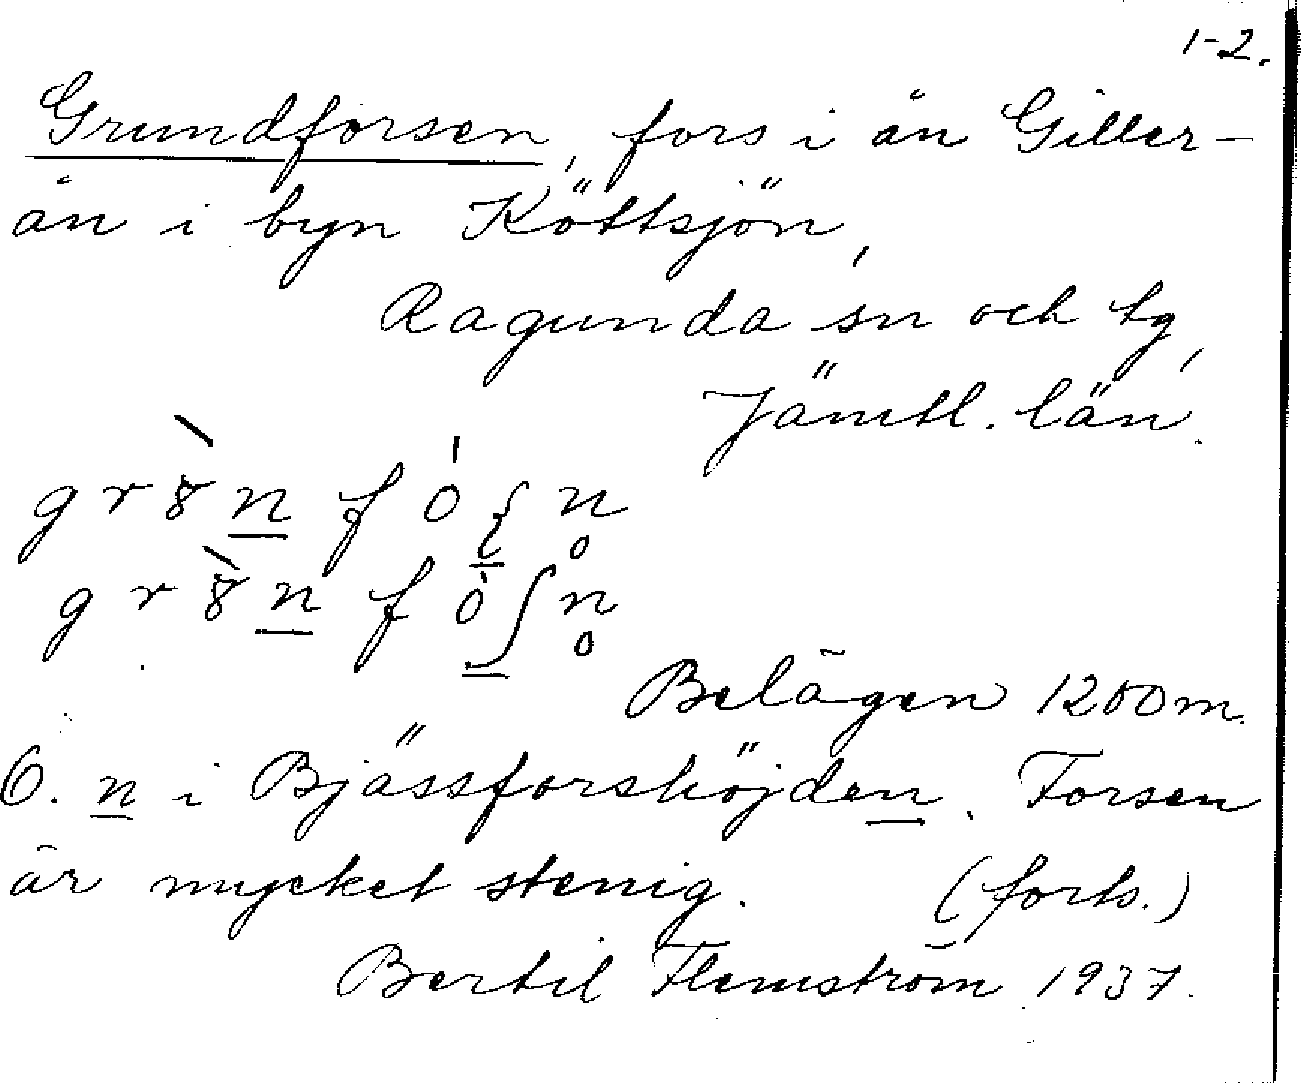 1-2.
Grundforsen, fors i ån Giller-
ån i byn Köttsjön,
Ragunda sn och tg,
Jämtl. län.
Belägen 1200 m.
O. n i Bjässforshöjden. Forsen
är mycket stenig. (forts.)
Bertil Flemström 1937.